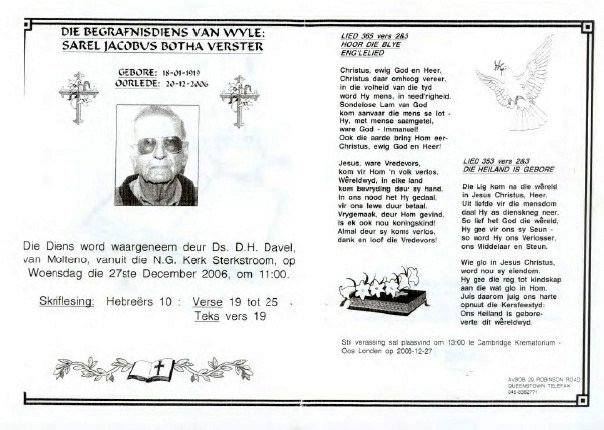 DIE BEGRAFNISDIENS VAN WYLE:
SAREL JACOBUS BOTHA VERSTER
GEBORE: 18-01-1919
OORLEDE: 20-12-2006
Die Diens word waargeneem deur Ds. D.H. Davel,
van Molteno, vanuit die N.G. Kerk Sterkstroom, op
Woensdag die 27ste December 2006, om 11:00.
Skriflesing: Hebreërs 10 : Verse 19 tot 25
Teks vers 19
LIED 365 vers 2&3
HOOR DIE BLYE
ENG'LELIED
Christus, ewig God en Heer,
Christus daar omhoog vereer,
in die volheid van die tyd
word Hy mens, in need'righeid.
Sondelose Lam van God
kom aanvaar die mens se lot -
Hy, met mense saamgetel,
ware God - Immanuel!
Ook die aarde bring Hom eer-
Christus, ewig God en Heer!
Jesus, ware Vredevors,
kom vir Hom 'n volk verlos.
Wêreldwyd, in elke land
kom bevryding deur sy hand.
In ons nood het Hy gedaal,
vir ons lewe duur betaal.
Vrygemaak, deur Hom gevind,
is ek ook nou koningskind!
Almal deur sy koms verlos,
dank en loof die Vredevors!
LIED 353 vers 2&3
DIE HEILAND IS GEBORE
Die Lig kom na die wêreld
in Jesus Christus, Heer.
Uit liefde vir die mensdom
daal Hy as dienskneg neer.
So lief het God die wêreld,
Hy gee vir ons sy Seun -
so word Hy ons Verlosser,
ons Middelaar en Steun.
Wie glo in Jesus Christus,
word nou sy eiendom.
Hy gee die reg tot kindskap
aan die wat glo in Hom.
Juis daarom juig ons harte
opnuut die Kersfeestyd:
Ons Heiland is gebore-
verte dit wêreldwyd.
Stil verassing sal plaasvind om 13:00 te Cambridge Krematorium -
Oos Londen op 2006-12-27
AVBOB 20 ROBINSON ROAD
QUEENSTOWN TELEFAX